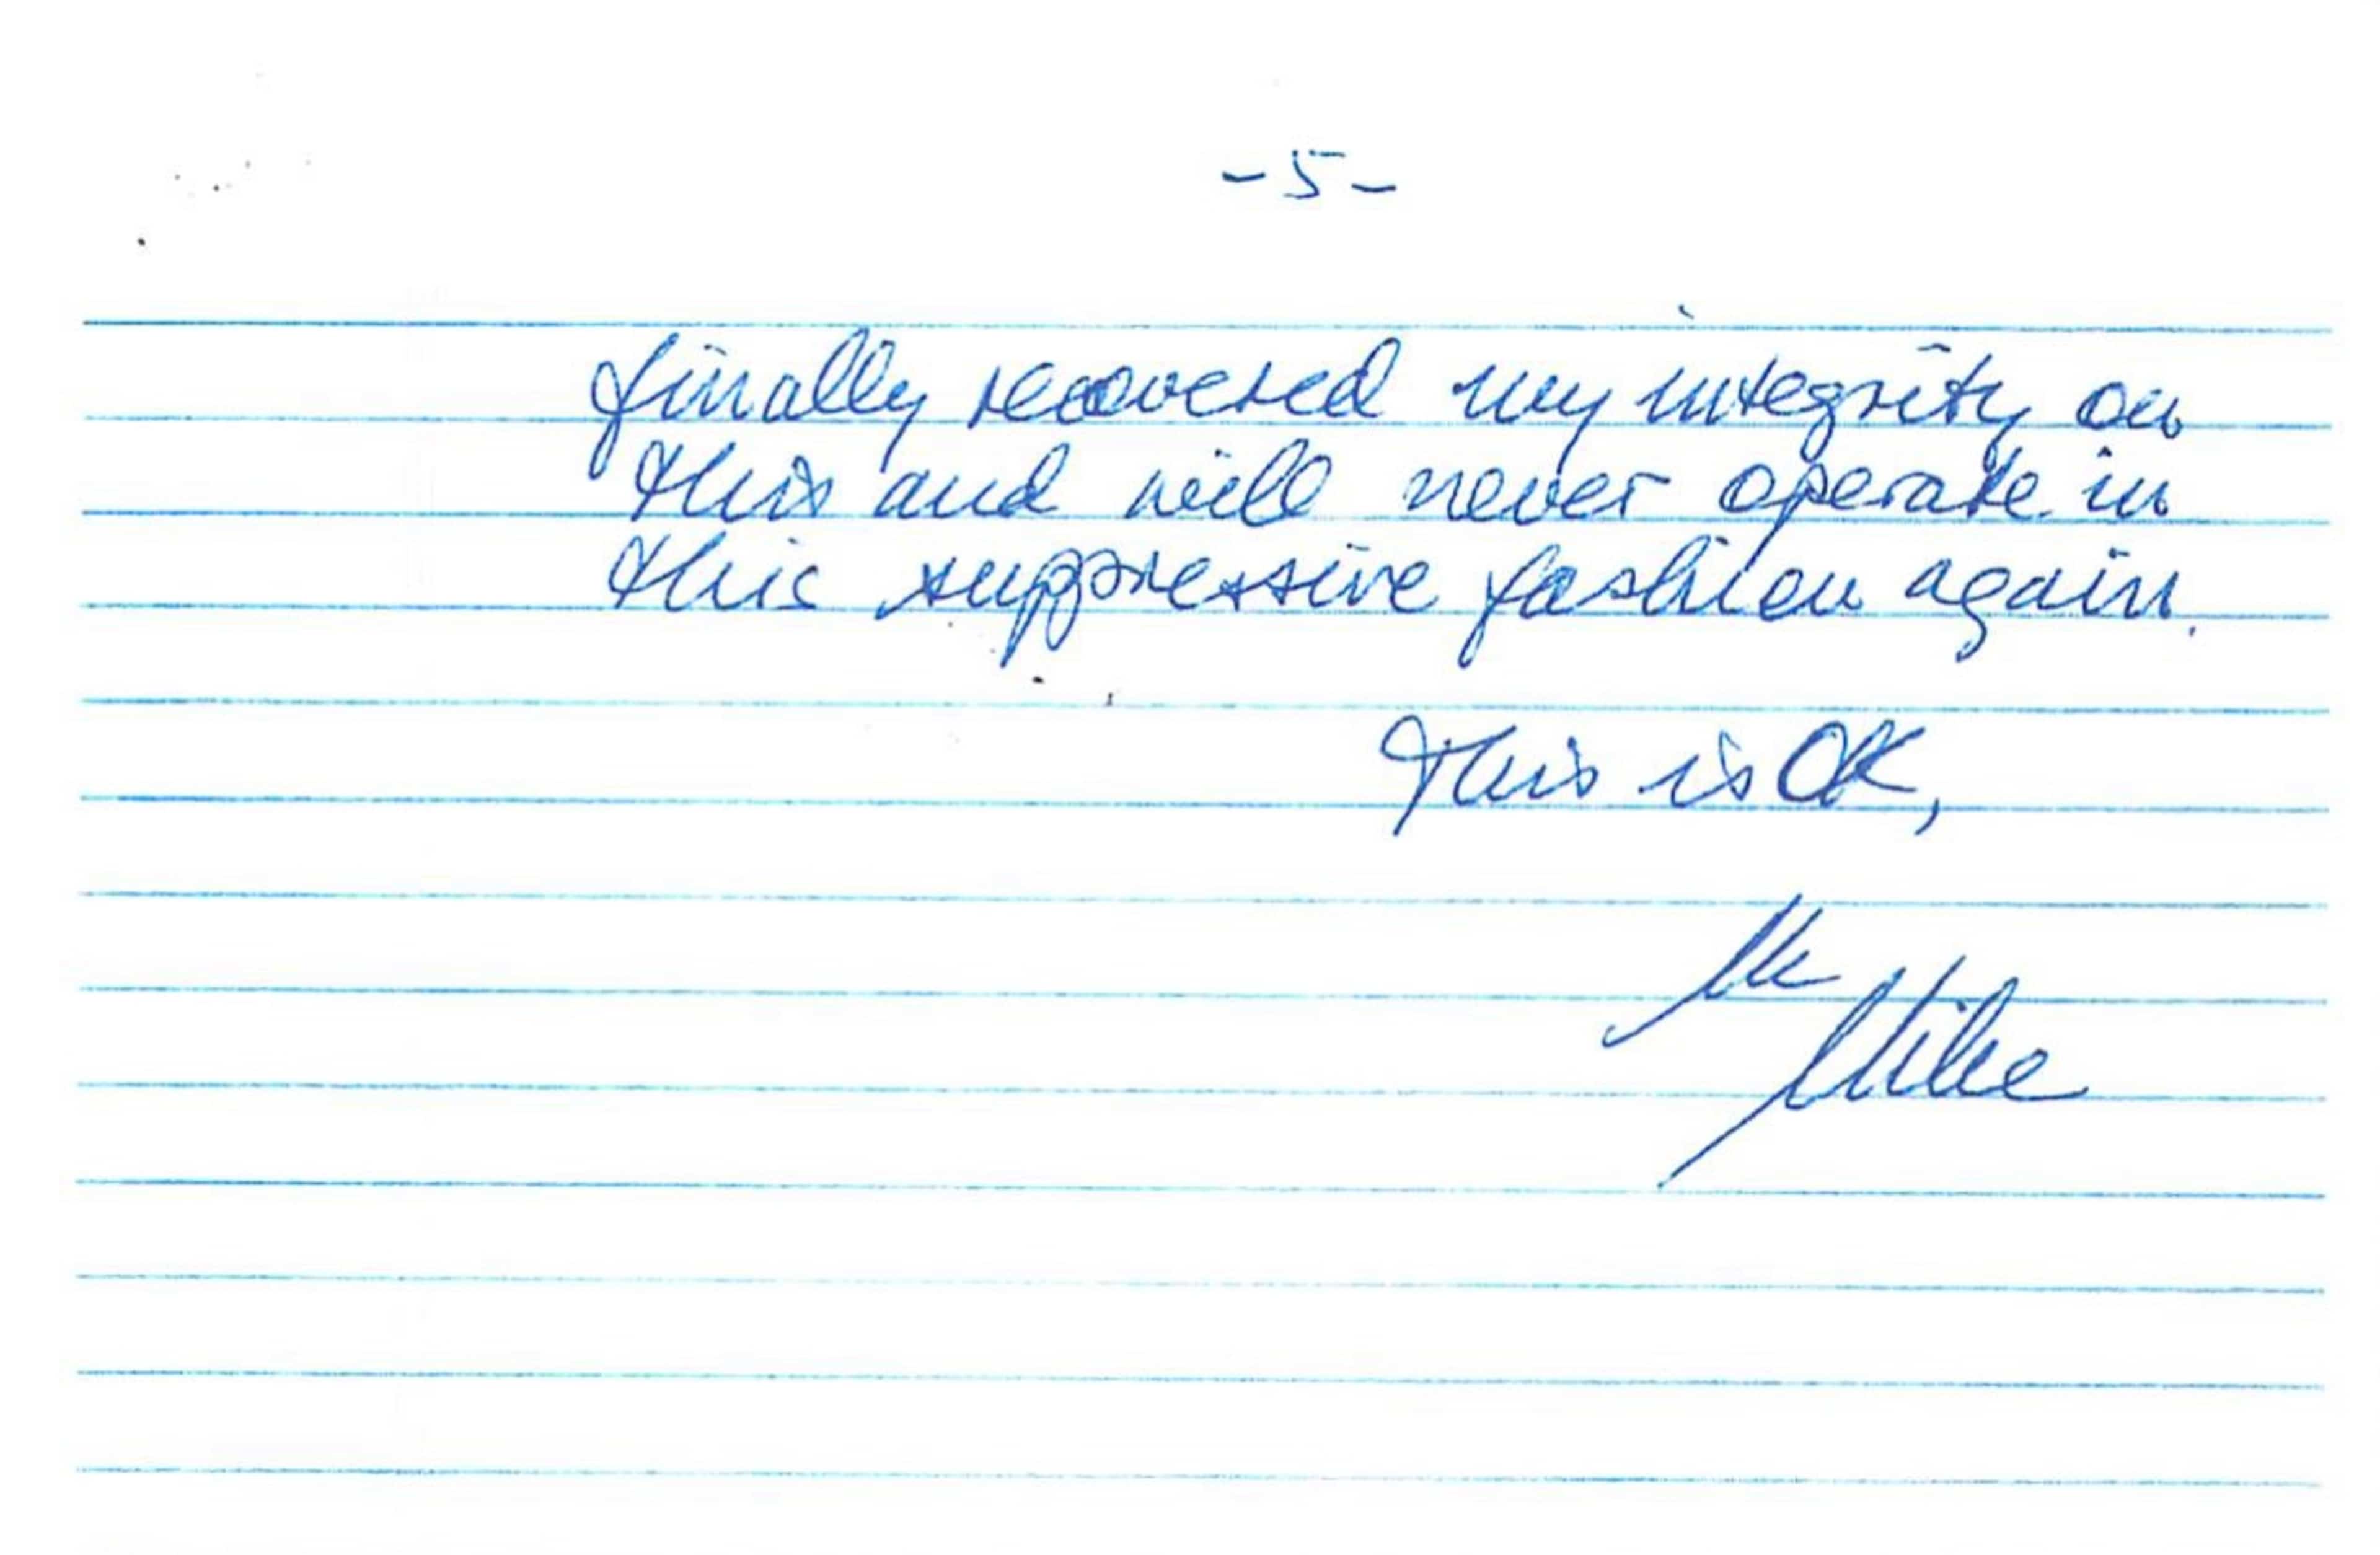 -5-
finally recovered my integrity on
this and will never operate in
this suppressive fashion again.
This is OK,
Mike